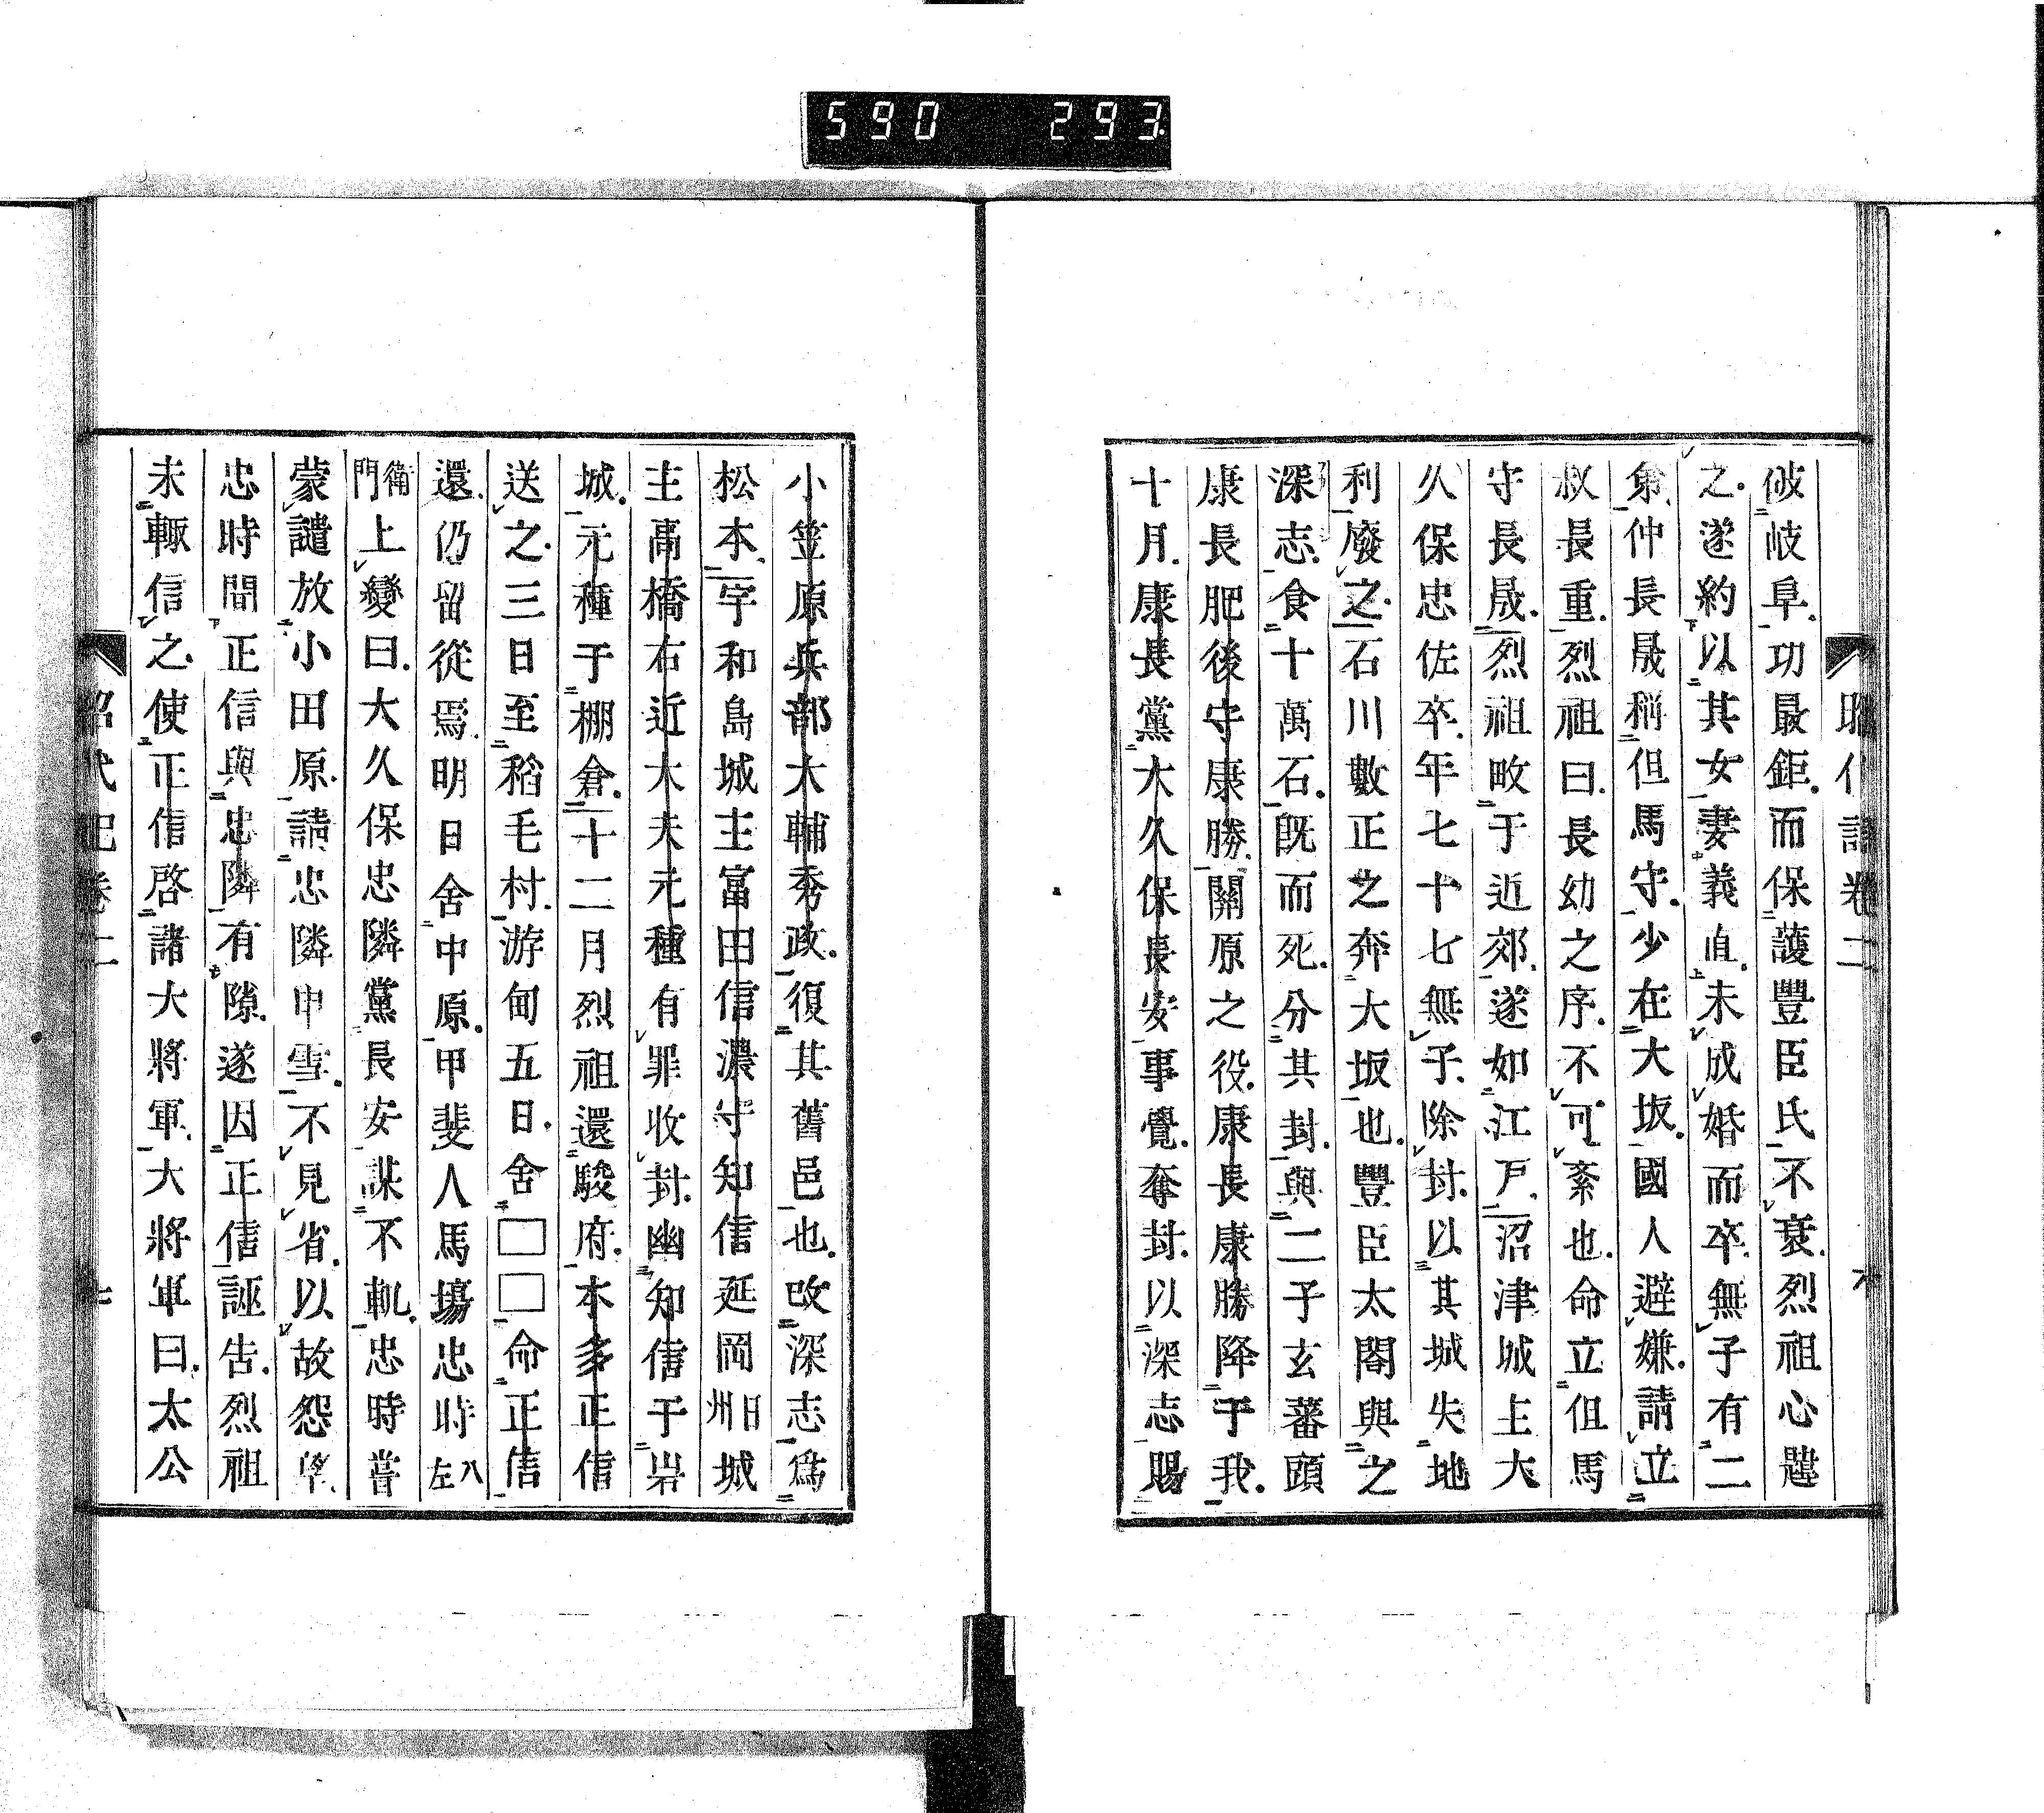 590 293
昭代記卷二 六
破岐阜功最鉅而保護豐臣氏不衰烈祖心韙
之遂約以其女妻義直未成婚而卒無子有二
弟仲長晟稱但馬守少在大坂國人避嫌請立
叔長重烈祖曰長幼之序不可紊也命立但馬
守長晟烈祖畋于近郊遂如江戸沼津城主大
久保忠佐卒年七十七無子除封以其城失地
利廢之石川數正之奔大坂也豐臣太閤與之
深志食十萬石既而死分其封與二子玄蕃頭
康長肥後守康勝關原之役康長康勝降于我
十月康長黨大久保長安事覺奪封以深志賜
小笠原兵部大輔秀政復其舊邑也改深志爲
松本宇和島城主富田信濃守知信延岡日州城
主高橋右近大夫元種有罪收封幽知信于岩
城元種于棚倉十二月烈祖還駿府本多正信
送之三日至稻毛村游甸五日舍□□命正信
還仍留從焉明日舍中原甲斐人馬場忠時八左
衞門上變曰大久保忠隣黨長安謀不軌忠時嘗
蒙譴放小田原請忠隣申雪不見省以故怨望
忠時間正信與忠隣有隙遂因正信誣告烈祖
未輙信之使正信啓諸大將軍大將軍曰太公
昭代記卷二 七